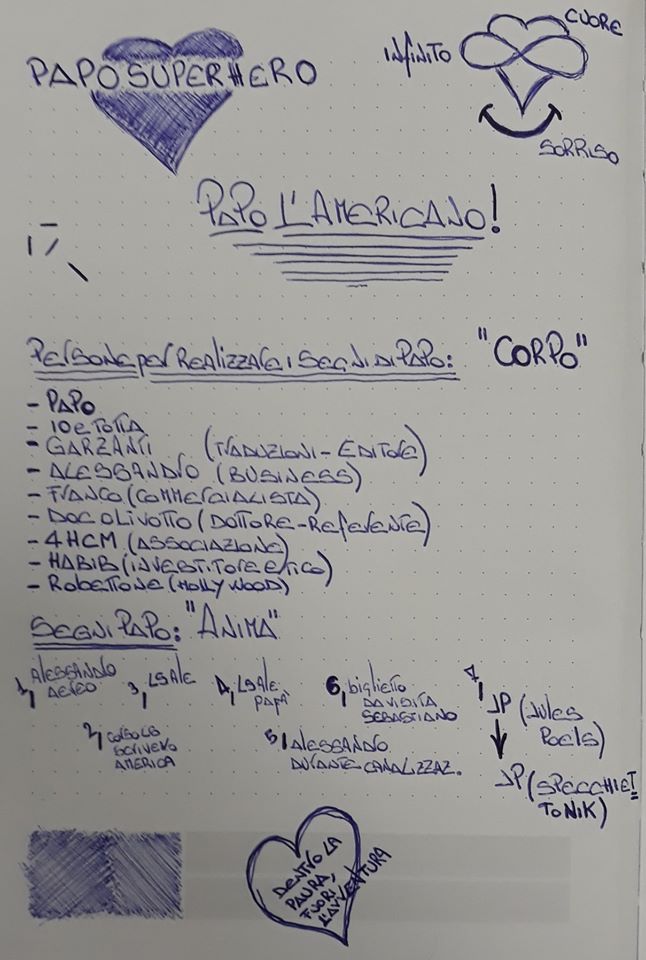 PAPO SUPERHERO
INFINITO
CUORE
SORRISO
PAPO L'AMERICANO!
PERSONE PER REALIZZARE I SEGNI DI PAPO: "CORPO"
- PAPO
- IO E TOTTA
- GARZANTI (TRADUZIONI - EDITORE)
- ALESSANDRO (BUSINESS)
- FRANCO (COMMERCIALISTA)
- DOC OLIVOTTO (DOTTORE - REFERENTE)
- 4HCM (ASSOCIAZIONE)
- HABIB (INVESTITORE ETICO)
- ROBERTONE (HOLLYWOOD)
SEGNI PAPO: "ANIMA"
1, ALESSANDRO
AEREO
2,
SCRIVERO
AMERICA
3, LSALE
4, LSALE
PAPÀ
5, ALESSANDRO
DURANTE CANALIZZAZ.
6, BIGLIETTO
DA VISITA
SEBASTIANO
7, JP (JULES
POELS)
JP (SPECCHIET
TO NIK)
DENTRO LA
PAURA,
FUORI
L'AVVENTURA